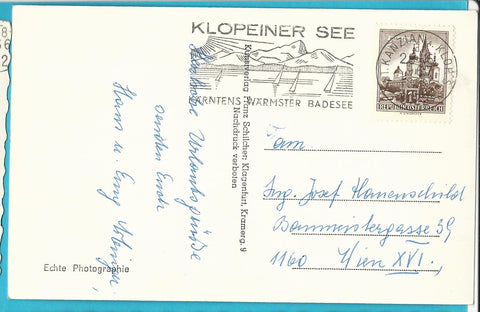 KLOPEINER SEE
KÄRNTENS WÄRMSTER BADESEE
KANZIAN KLOP
REPUBLIK ÖSTERREICH
Herzliche Urlaubsgrüße
senden Euch
Hans u.
Kunstverlag Franz Schilcher, Klagenfurt, Kramerg. 9
Nachdruck verboten
Fam.
Ing. Josef Hanenschild
Baumeistergasse 39
1160 Wien XVI.
Echte Photographie